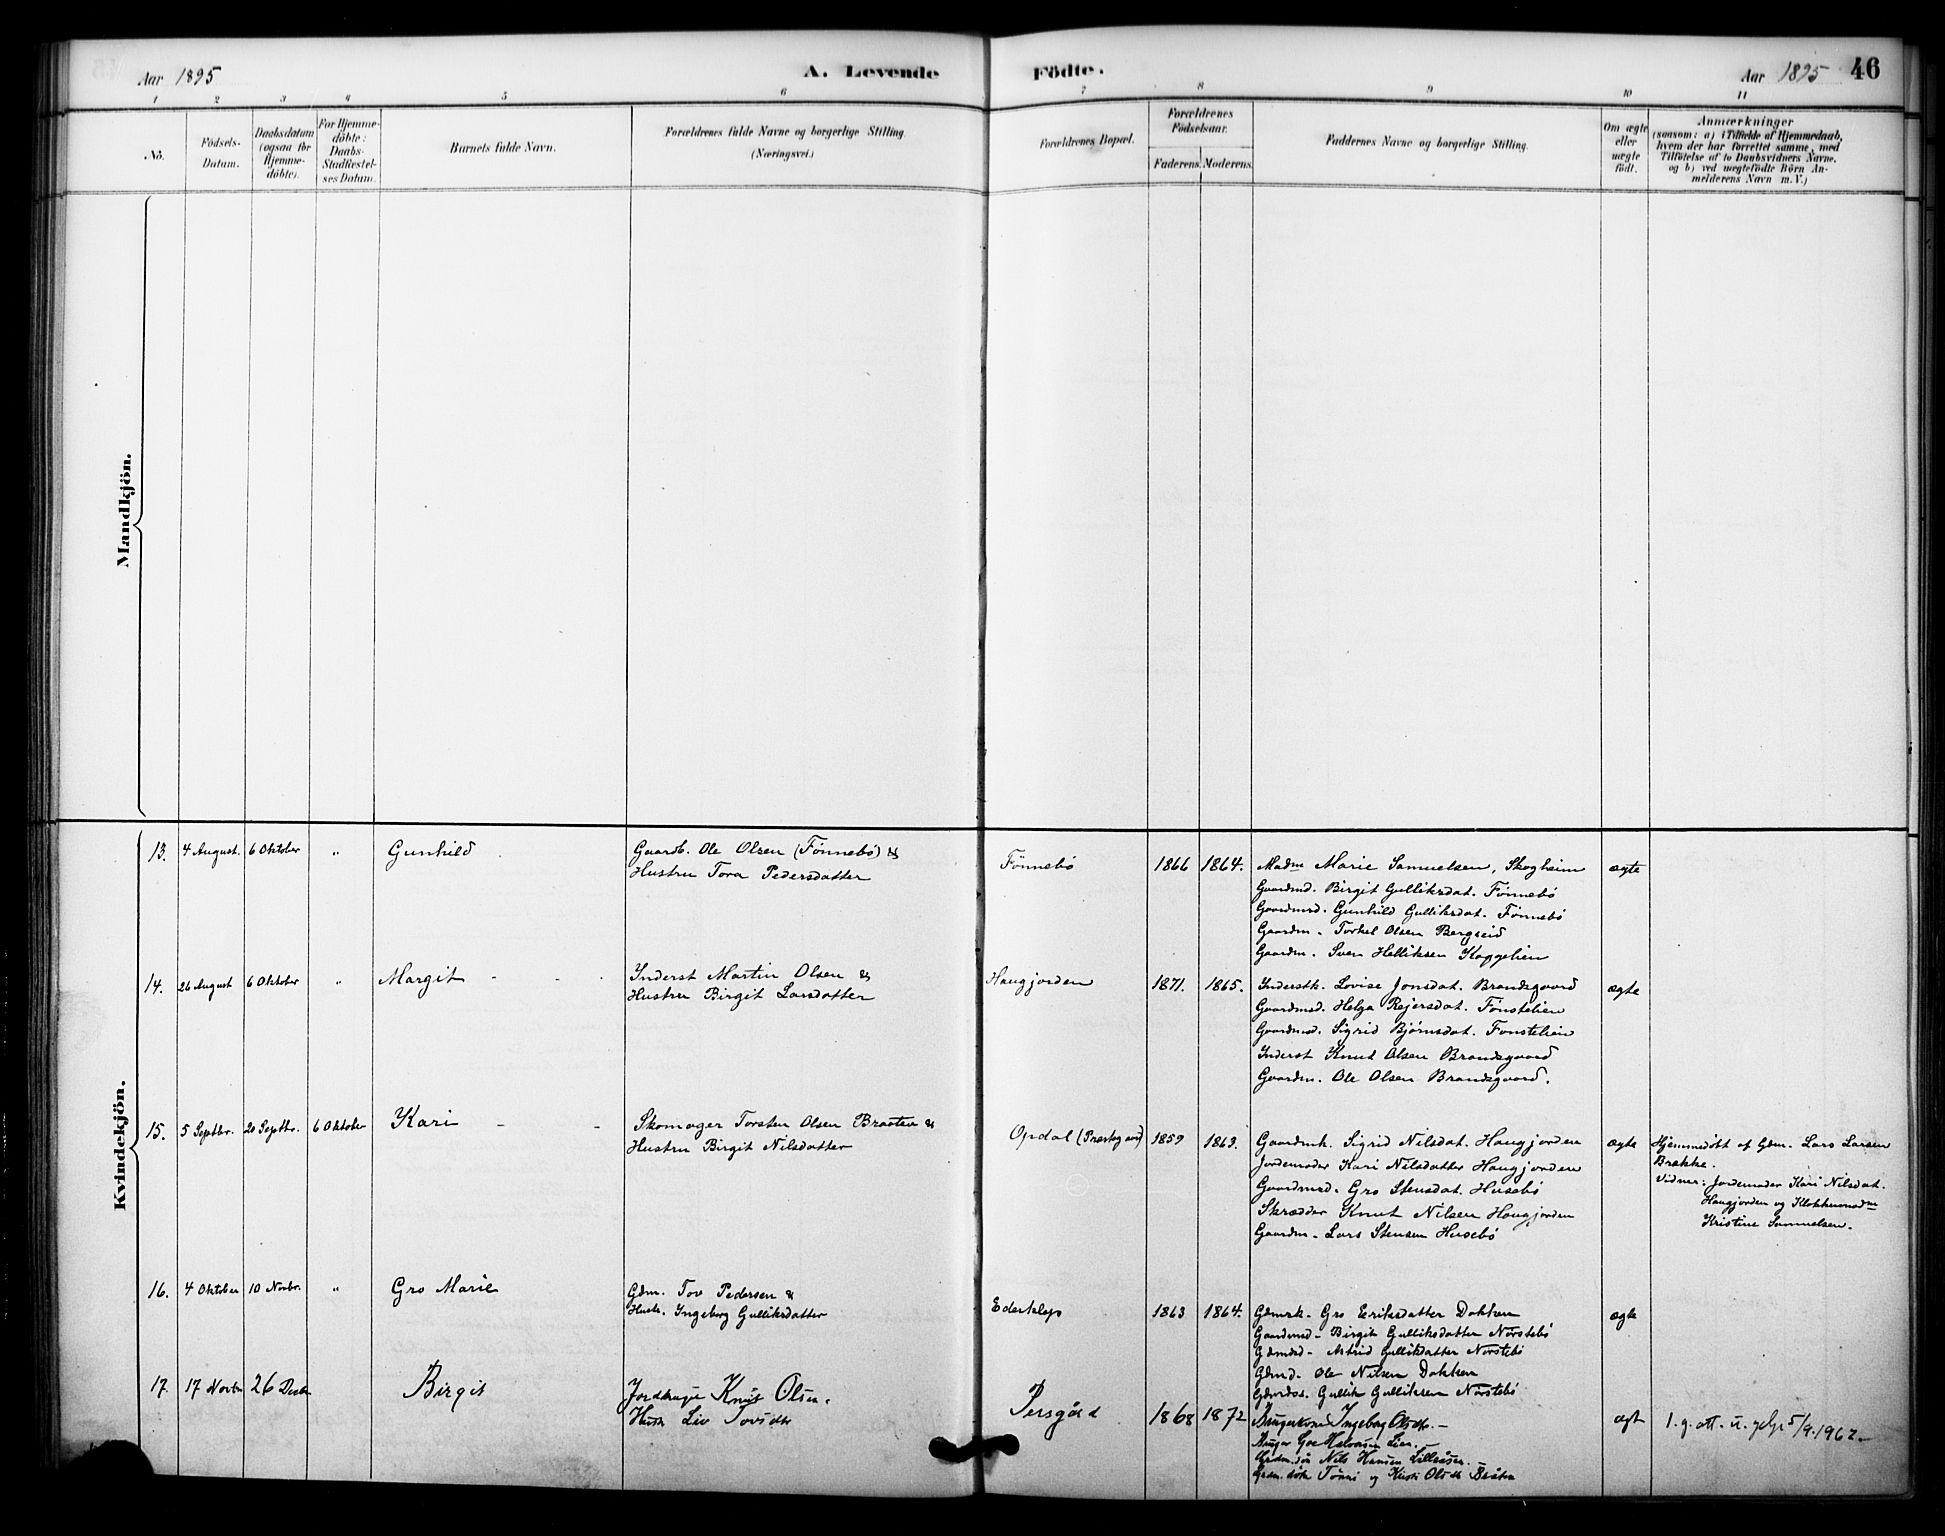 Aar 1895
A. Levende
Födte.
Aar 1895
46
1 2 3 4 5 6 7 8 9 10 11
No.
Födsels-
Datum.
Daabsdatum
(ogsaa for
Hjemme-
döbte).
For Hjemme-
döbte:
Daabs-
Stadfæstel-
ses Datum.
Barnets fulde Navn.
Forældrenes fulde Navne og borgerlige Stilling.
(Næringsvei.)
Forældrenes Bopæl.
Forældrenes
Födselsaar.
Faderens. Moderens.
Faddernes Navne og borgerlige Stilling.
Om ægte
eller
uægte
födt.
Anmærkninger
(saasom: a) i Tilfælde af Hjemmedaab,
hvem der har forrettet samme, med
Tilföielse af to Daabsvidners Navne.
og b) ved uægtefödte Börn An-
melderens Navn m. V.)
Mandkjön.
Kvindekjön.
13. 4 August. 6 Oktober " Gunhild
Gaardb. Ole Olsen (Fönnebö) &
Hustru Tora Pedersdatter
Fönnebö 1866 1864.
Madm Marie Samuelsen, Skogheim
Gaardmd. Birgit Gulliksdat. Fönnebö
Gaardmsd. Gunhild Gulliksdat. Fönnebö
Gaardm. Torkel Olsen Bergseid
Gaardm. Sven Helliksen Koppelien
ægte
14. 26 August 6 Oktober " Margit
Inderst Martin Olsen &
Hustru Birgit Larsdatter
Haugjorden 1871. 1865.
Inderstk. Lovise Jonsdat. Brandsgaard
Gaardmsd. Helga Rejersdat. Fönstelien
Gaardmsd. Sigrid Bjørnsdat. Fönstelien
Inderst Knut Olsen Brandsgaard
Gaardm. Ole Olsen Brandsgaard.
ægte
15. 5 Septbr. 20 Septbr. 6 Oktober Kari
Skomager Torsten Olsen Braaten &
Hustru Birgit Nilsdatter
Opdal (Præstegaard) 1859 1863.
Gaardmk. Sigrid Nilsdat. Haugjorden
Jordemoder Kari Nilsdatter Haugjorden
Gaardmsd. Gro Stensdat. Husebö
Skrædder Knut Nilsen Haugjorden
Gaardm. Lars Stensen Husebö
ægte
Hjemmedöbt af Gdm. Lars Larsen
Brække.
Vidner: Jordemoder Kari Nilsdat.
Haugjorden og Klokkermadm
Kristine Samuelsen.
16. 4 Oktober 10 Novbr. " Gro Marie
Gdm. Tov Pedersen &
Hustr. Ingeborg Gulliksdatter
Ederklep 1863 1864.
Gdmrk. Gro Eriksdatter Dokken
Gaardmsd. Birgit Gulliksdatter Norstebö
Gdmsd. Astrid Gulliksdatter Norstebö
Gdmd. Ole Nilsen Dokken
Gullik Gulliksen Norstebö
ægte
17. 17 Novbr 26 Decbr Birgit
Knut Olsen.
Hustr Liv Tovsdtr
Persgård 1868 1872
Ingeborg Olsdtr.
Halvorsen Lien.
Nils Hansen Lilleåsen.
Tönni og Kisti Olsdtr Bråten
ægt
1. g. att. u. 5/9.1962.